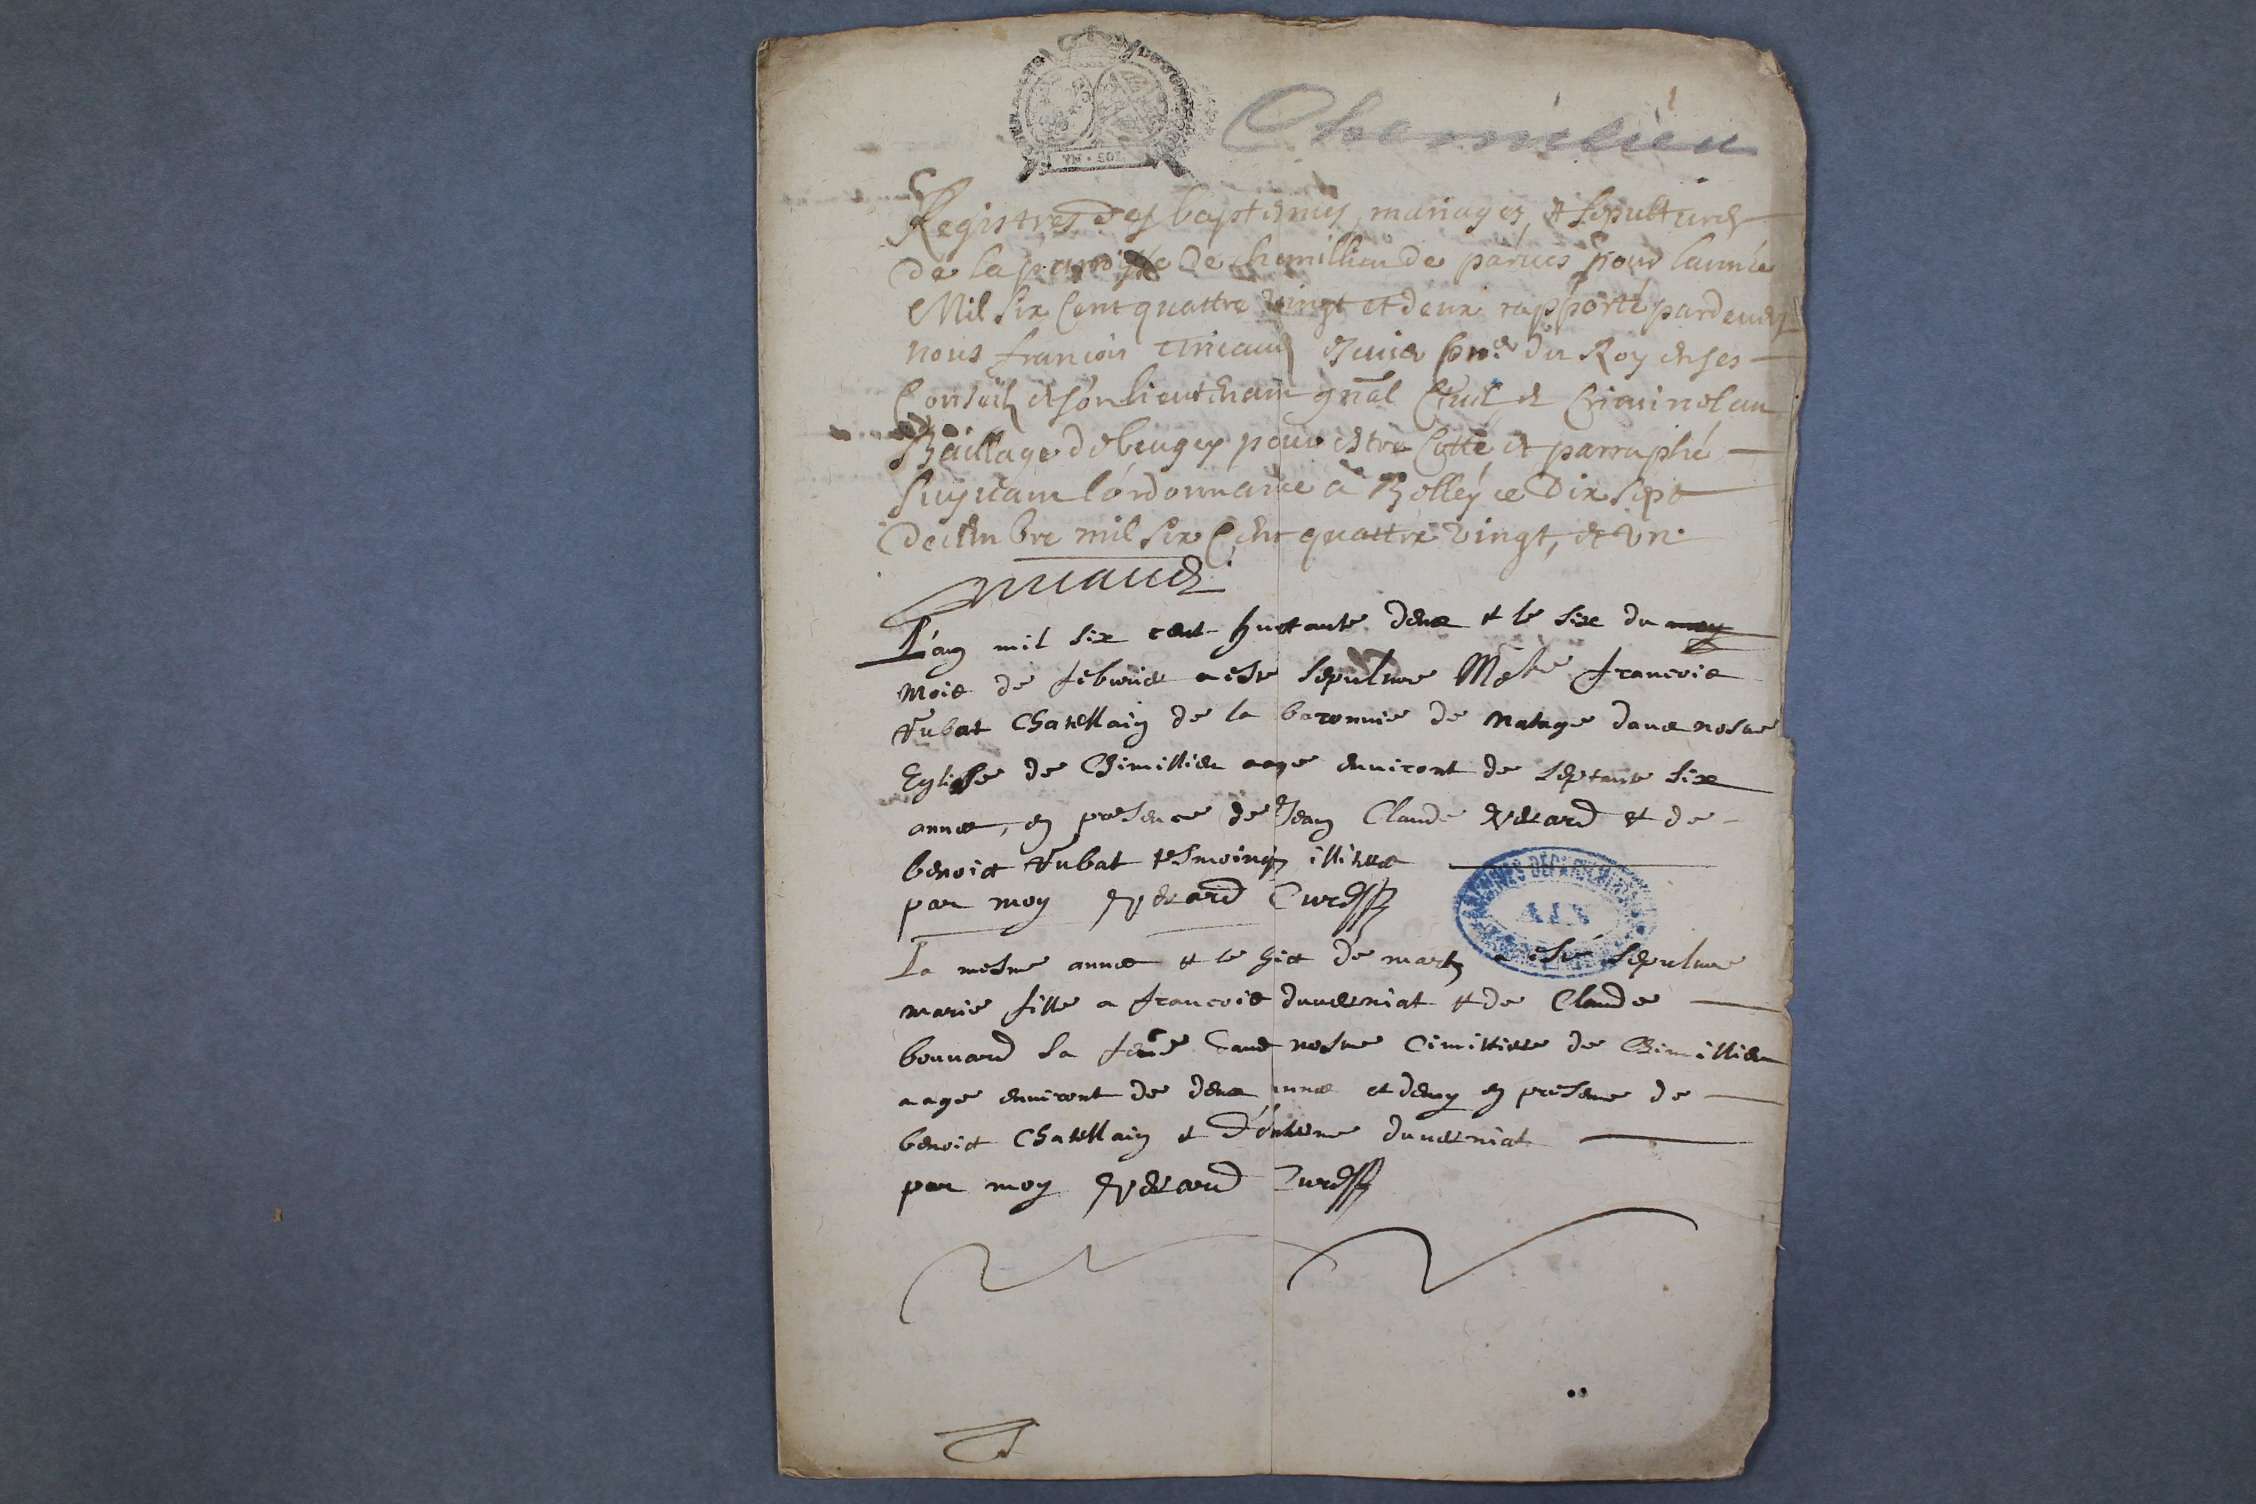 VN · SOL
1
Chemilieu
Registres des baptesmes, mariages, et sepultures
de la parroisse de chemillieu de parves pour lannée
Mil six Cent quattre vingt et deux rapporté pardevant
nous francois escuier du Roy en ses
Conseils et son lieutenant gnal Civil et Criminel au
Baillage de beugey pour estre Cotté et parraphé
suyvant lordonnance a Belley ce Dix sept
decembre mil six Cent quattre vingt, et un
L'an mil six cent huittante deux et le six du may
mois de febvrier a este sepulture francois
Chatellain de la baronnie de Natage dans nostre
Eglisse de Chimillieu aage environt de septante six
annes, en presence de Jean Claude et de
benoict tesmoings illitres
par moy Curé
La mesme annee et le huict de marts a esté sepulture
marie fille a francois duverniat et de Claude
bonnard sa feme dans nostre Cimittiere de Chimillieu
aage environt de deux annes et demy en presence de
benoict Chatellain et duverniat
par moy Curé
ARCHIVES DÉPARTEMENTALES
AIN